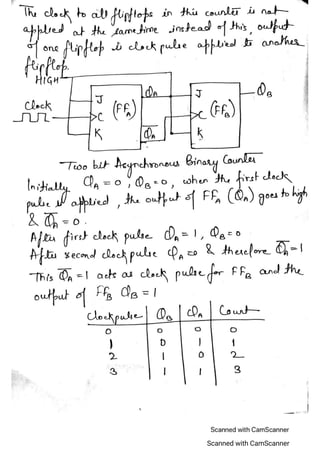 The clock to all flipflops in this counter is not
applied at the same time instead of this, output
of one flipflop is clock pulse applied to another
flipflop.
HIGH
Q_A
Q_B
J
J
Clock
>C (FF_A)
>C (FF_B)
K
Q̅_A
K
Two bit Asynchronous Binary Counter
Initially Q_A = 0, Q_B = 0, when the first clock
pulse is applied, the output of FF_A (Q_A) goes to high
& Q̅_A = 0.
After first clock pulse Q_A = 1, Q_B = 0
After second clock pulse Q_A = 0 & therefore Q̅_A = 1
This Q̅_A = 1 acts as clock pulse for FF_B and the
output of FF_B Q_B = 1
Clock pulse Q_B Q_A Count
0 0 0 0
1 0 1 1
2 1 0 2
3 1 1 3
Scanned with CamScanner
Scanned with CamScanner